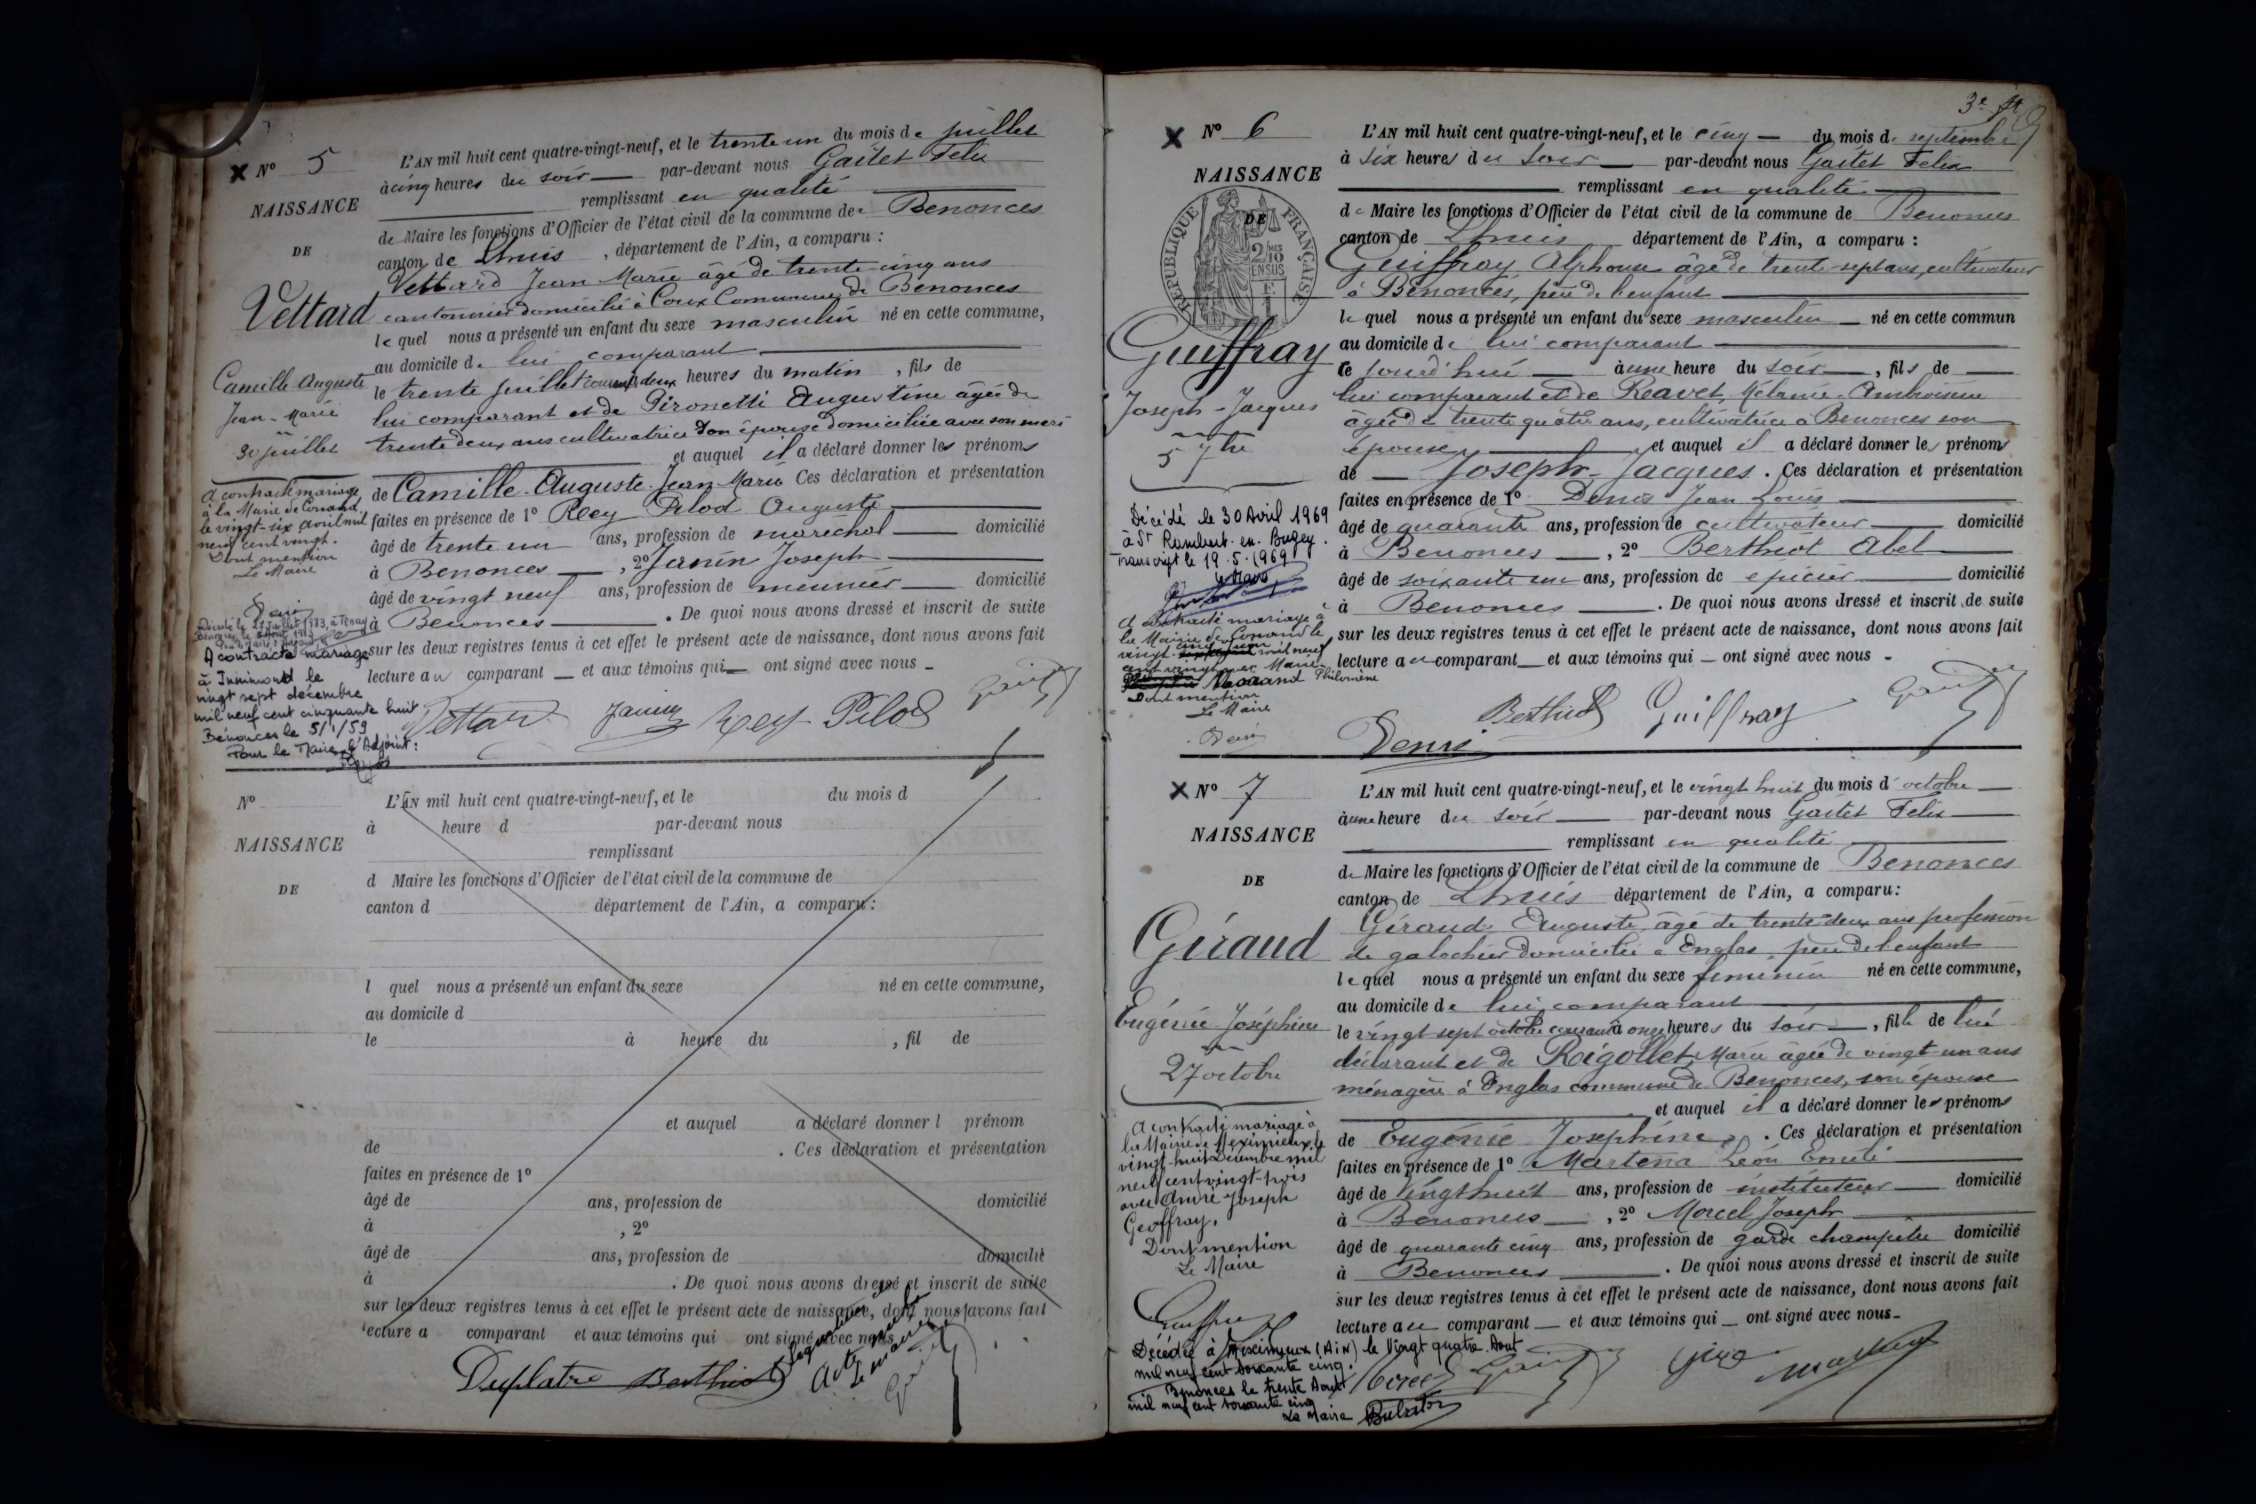 N° 5
NAISSANCE
DE
Vettard
Camille Auguste
Jean-Marie
30 juillet
A contracté mariage
à la Mairie de Conand
le vingt-six avril mil
neuf cent vingt.
Dont mention
Le Maire
A contracté mariage
à Innimond le
vingt sept décembre
mil neuf cent cinquante huit
Bénonces le 5/1/59
Pour le Maire, l'Adjoint:
L'AN mil huit cent quatre-vingt-neuf, et le trente un du mois de juillet
à cinq heures du soir par-devant nous Gaitet Felix
remplissant en qualité
de Maire les fonctions d'Officier de l'état civil de la commune de Benonces
canton de Lhuis, département de l'Ain, a comparu :
Vettard Jean Marie âgé de trente-cinq ans
cantonnier domicilié à Coux Commune de Benonces
lequel nous a présenté un enfant du sexe masculin né en cette commune,
au domicile de lui comparant
le trente juillet courant à deux heures du matin, fils de
lui comparant et de Pironetti Augustine âgée de
trente deux ans cultivatrice son épouse domiciliée avec son mari
et auquel il a déclaré donner les prénoms
de Camille-Auguste-Jean-Marie Ces déclaration et présentation
faites en présence de 1° Rey Pilod Auguste
âgé de trente un ans, profession de maréchal domicilié
à Benonces, 2° Janin Joseph
âgé de vingt neuf ans, profession de meunier domicilié
à Benonces. De quoi nous avons dressé et inscrit de suite
sur les deux registres tenus à cet effet le présent acte de naissance, dont nous avons fait
lecture au comparant et aux témoins qui ont signé avec nous -
Vettard Janin Rey-Pilod Gaitet
N°
NAISSANCE
DE
L'AN mil huit cent quatre-vingt-neuf, et le du mois d
à heure d par-devant nous
remplissant
d Maire les fonctions d'Officier de l'état civil de la commune de
canton d département de l'Ain, a comparu :
l quel nous a présenté un enfant du sexe né en cette commune,
au domicile d
le à heure du , fil de
et auquel a déclaré donner l prénom
de . Ces déclaration et présentation
faites en présence de 1°
âgé de ans, profession de domicilié
à , 2°
âgé de ans, profession de domicilié
à . De quoi nous avons dressé et inscrit de suite
sur les deux registres tenus à cet effet le présent acte de naissance, dont nous avons fait
lecture a comparant et aux témoins qui ont signé avec nous
Duplatre Berthiot
Acte nul
Le maire
3e ft
N° 6
NAISSANCE
DE
RÉPUBLIQUE FRANÇAISE
2/10 EN SUS
Guiffray
Joseph-Jacques
5 7bre
Décédé le 30 Avril 1969
à St Rambert-en-Bugey.
Transcrit le 19.5.1969
Le Maire
A contracté mariage à
la Mairie de Conand le
vingt-cinq juin mil neuf
cent vingt avec Marie
Philomène
Dont mention
Le Maire
L'AN mil huit cent quatre-vingt-neuf, et le cinq du mois de septembre
à six heures du soir par-devant nous Gaitet Felix
remplissant en qualité
de Maire les fonctions d'Officier de l'état civil de la commune de Benonces
canton de Lhuis département de l'Ain, a comparu :
Guiffray Alphonse âgé de trente-sept ans, cultivateur
à Benonces, père de l'enfant
lequel nous a présenté un enfant du sexe masculin né en cette commun
au domicile de lui comparant
ce jourd'hui à une heure du soir, fils de
lui comparant et de Reavet, Mélanie-Ambroisine
âgée de trente quatre ans, cultivatrice à Benonces son
épouse et auquel il a déclaré donner les prénoms
de Joseph-Jacques. Ces déclaration et présentation
faites en présence de 1° Denis Jean Louis
âgé de quarante ans, profession de cultivateur domicilié
à Benonces, 2° Berthiot Abel
âgé de soixante un ans, profession de épicier domicilié
à Benonces. De quoi nous avons dressé et inscrit de suite
sur les deux registres tenus à cet effet le présent acte de naissance, dont nous avons fait
lecture au comparant et aux témoins qui ont signé avec nous -
Denis Berthiot Guiffray Gaitet
N° 7
NAISSANCE
DE
Giraud
Eugénie Joséphine
27 octobre
A contracté mariage à
la Mairie de Meximieux le
vingt-huit Décembre mil
neuf cent vingt-trois
avec André Joseph
Geoffray.
Dont mention
Le Maire
Décédée à Meximieux (Ain) le Vingt quatre Aout
mil neuf cent soixante cinq.
Bénonces le trente Aout
mil neuf cent soixante cinq
Le Maire
L'AN mil huit cent quatre-vingt-neuf, et le vingt huit du mois d'octobre
à une heure du soir par-devant nous Gaitet Felix
remplissant en qualité
de Maire les fonctions d'Officier de l'état civil de la commune de Benonces
canton de Lhuis département de l'Ain, a comparu :
Géraud Auguste, âgé de trente-deux ans profession
de galochier domicilié à Onglas, père de l'enfant
lequel nous a présenté un enfant du sexe feminin né en cette commune,
au domicile de lui comparant
le vingt sept octobre courant à onze heures du soir, fille de lui
déclarant et de Rigollet Marie âgée de vingt-un ans
ménagère à Onglas commune de Benonces, son épouse
et auquel il a déclaré donner les prénoms
de Eugénie-Joséphine. Ces déclaration et présentation
faites en présence de 1° Martena Léon Emile
âgé de vingt huit ans, profession de instituteur domicilié
à Benonces, 2° Morcel Joseph
âgé de quarante cinq ans, profession de garde champêtre domicilié
à Benonces. De quoi nous avons dressé et inscrit de suite
sur les deux registres tenus à cet effet le présent acte de naissance, dont nous avons fait
lecture au comparant et aux témoins qui ont signé avec nous-
Morcel Gaitet